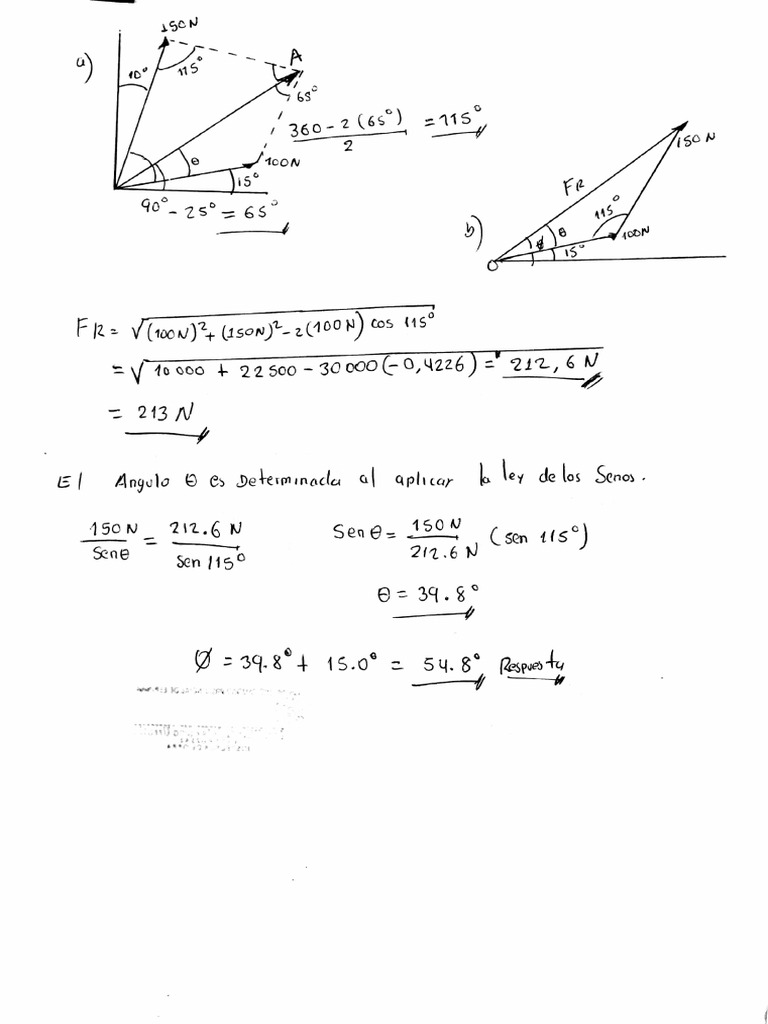 a)
150N
10°
115°
A
65°
θ
100N
15°
90° - 25° = 65°
360 - 2(65°) / 2 = 115°
b)
FR
150N
115°
θ
ϕ
15°
100N
O
FR = √(100N)² + (150N)² - 2(100N) cos 115°
= √10 000 + 22 500 - 30 000 (-0,4226) = 212,6 N
= 213 N
El Angulo θ es Determinada al aplicar la ley de los Senos.
150 N / Senθ = 212.6 N / Sen 115°
Senθ = 150 N / 212.6 N (sen 115°)
θ = 39.8°
Ø = 39.8° + 15.0° = 54.8° Respuesta